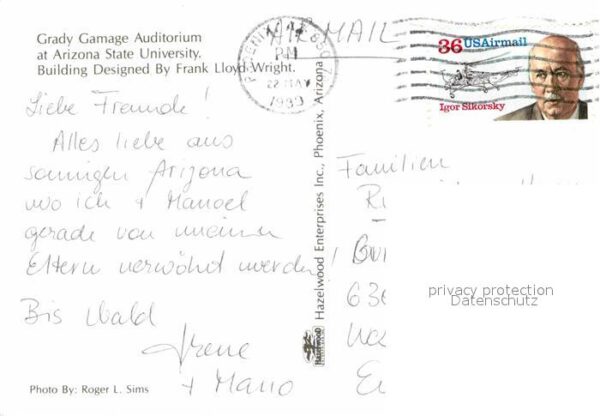 Grady Gamage Auditorium
at Arizona State University.
Building Designed By Frank Lloyd Wright.
AIR MAIL
PM
22 MAY
36 USAirmail
Igor Sikorsky
Liebe Freunde!
Alles liebe aus
sonnigen Arizona
wo ich + Manoel
gerade von meinen
Eltern verwöhnt werden!
Bis bald
Irene
+ Mano
Photo By: Roger L. Sims
Hazelwood Enterprises Inc., Phoenix, Arizona
Hazelwood
Familien
privacy protection
Datenschutz